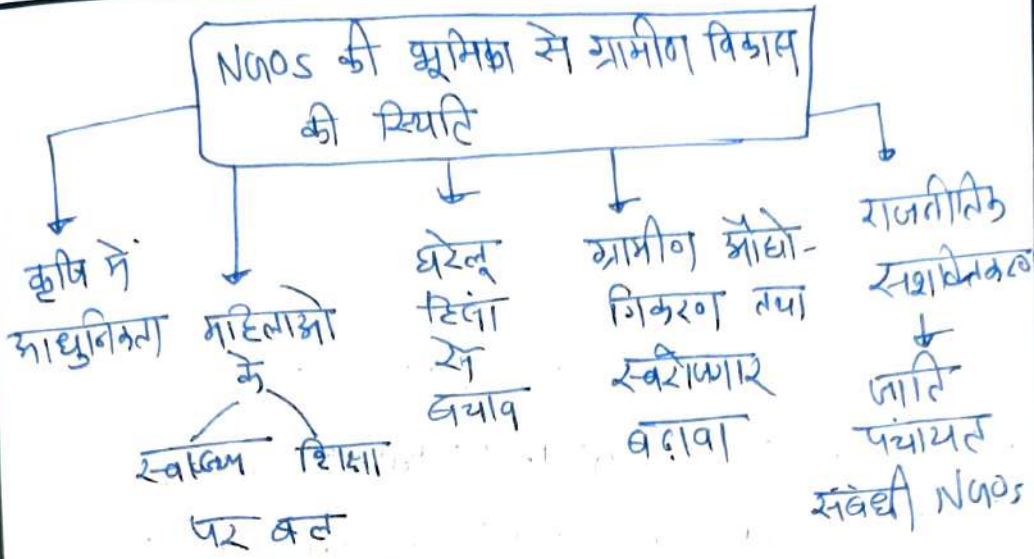 NGOs की भूमिका से ग्रामीण विकास
की स्थिति
कृषि में
आधुनिकता
महिलाओ
के
स्वास्थ्य शिक्षा
पर बल
घरेलू
हिंसा
से
बचाव
ग्रामीण औद्यो-
गिकरण तथा
स्वरोजगार
बढ़ावा
राजनीतिक
सशक्तिकरण
जाति
पंचायत
संबंधी NGOs